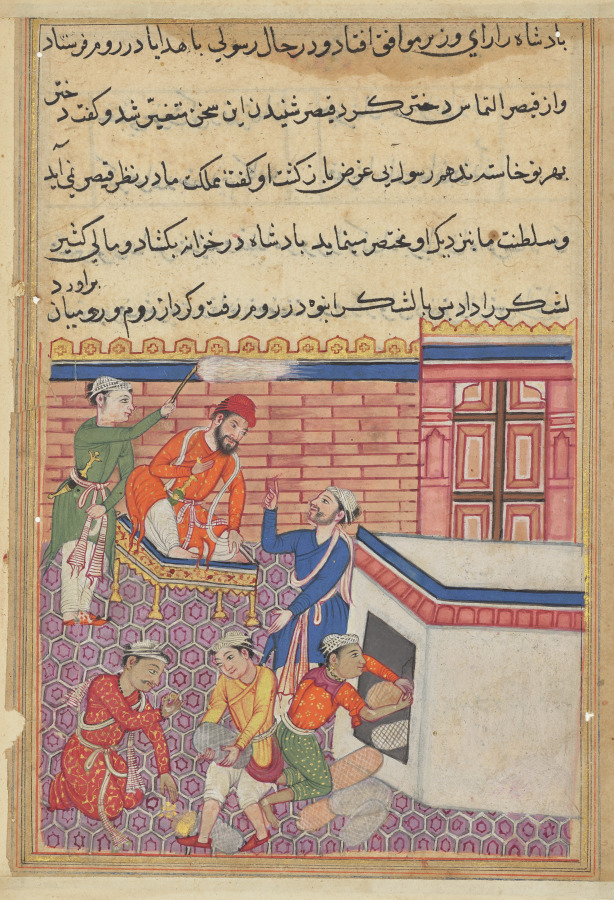 بادشاه را رای وزیر موافق افتاد و در حال رسولی با هدایا در روم فرستاد
و از قیصر التماس دختر کرد قیصر شنیدن این سخن متغیّر شد و گفت دختر
بهر تو خاسته ندهم رسول بی غرض باز گشت او گفت مملکت ما در نظر قیصر نمی آید
و سلطنت ما بنزدیک او مختصر مینماید بادشاه در خزانه بکشاد و مالی کثیر
لشکر را داد پس با لشکر انبوه در روم رفت و کرد از روم و رومیان براورد